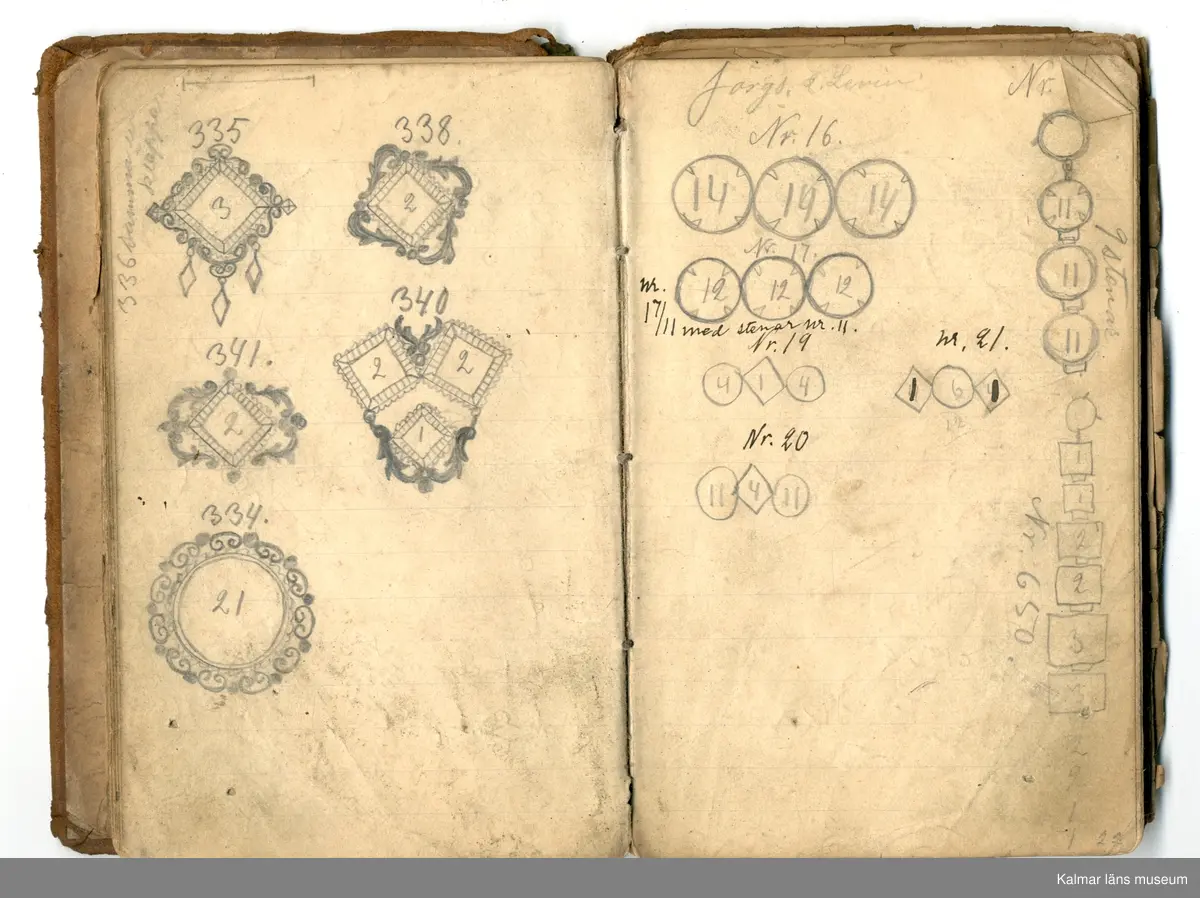 335
3
338.
2
336 samma m
knappar
341.
2
340
2 2
1
334.
21
Nr.
Nr. 16.
14 19 14
Nr. 17.
12 12 12
nr.
17/11 med stenar nr. 11.
Nr. 19
4 1 4
nr. 21.
1 6 1
12
Nr. 20
11 4 11
11
11
11
9 stenar
1
1
1
2
2
3
3
2
2
1
1
Nr. 650.
Kalmar läns museum